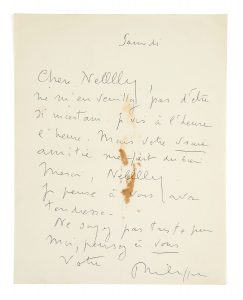 Samedi
Chere Nellly
ne m'en veuillez pas d'être
si incertain. Je vis à l'heure
l'heure. Mais votre vraie
amitié me fait du bien
Merci, Nellly.
Je pense à vous avec
tendresse.
Ne soyez pas triste pour
moi, pensez à vous
Votre Philippe